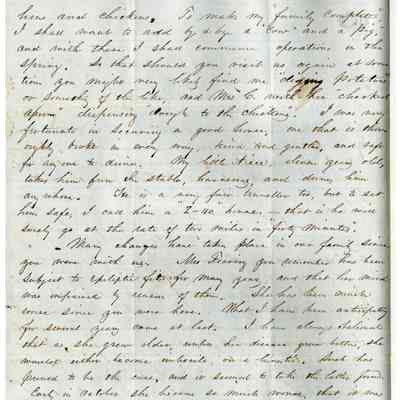 hens and chickens. To make my family complete
I shall want to add by & bye a "Cow" and a "Pig",
and with these I shall commence operations in the
Spring. So that should you visit us again at some
time you maybe very likely find me diging Potatoes
or something of the like, and Mrs C. with her checked
apron dispensing dough to the chickens. I was very
fortunate in securing a good horse, one that is thor-
oughly broke in every way, kind and gentle, and safe
for any one to drive. My little niece, eleven years old,
takes him from the stable, harnesses and drives him
any where. He is a very fair traveller too, but to set
him safe, I call him a "2-40" horse, - that is he will
surely go at the rate of two miles in "forty minutes".
Many changes have taken place in our family since
you were with us. Mrs you remember has been
subject to epileptic fits for many years and that her mind
was impaired by reason of them. She has been much
worse since you were here. What I have been anticipating
for several years came at last. I have always believed
that as she grew older, unless her disease grew better, she
would either become imbecile or a lunatic. Such has
proved to be the case, and it seemed to take the latter form.
Early in October she became so much worse, that it was